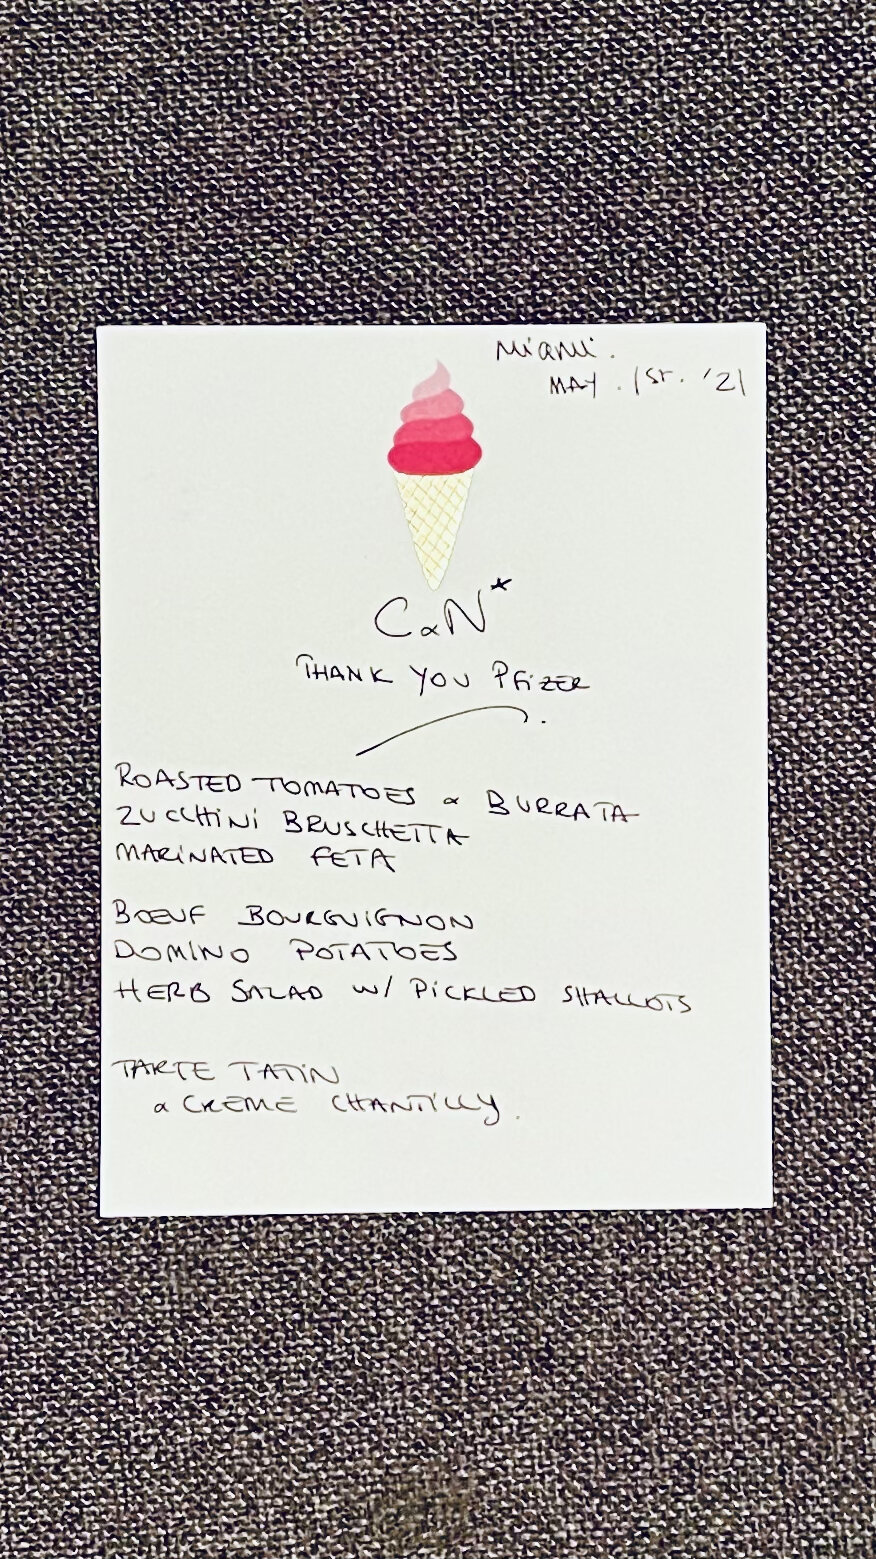 Miami.
MAY. 1ST. '21
C&N*
THANK YOU PFiZER
ROASTED TOMATOES & BURRATA
ZUCCHiNi BRUSCHETTA
MARiNATED FETA
BŒUF BOURGUiGNON
DOMINO POTATOES
HERB SALAD W/ PiCKLED SHALLOTS
TARTE TATiN
& CREME CHANTiLLY.